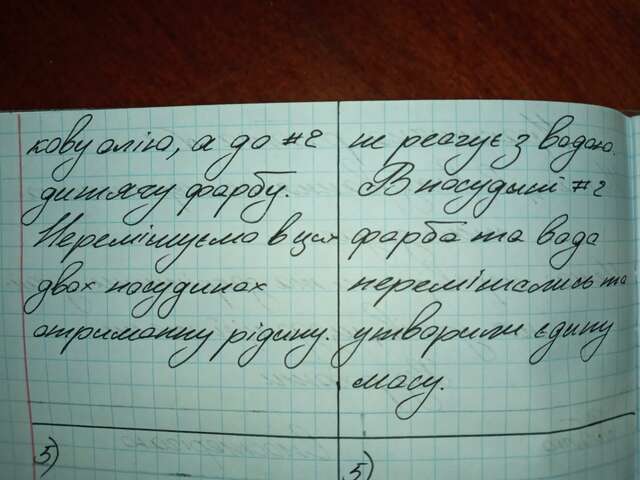 кову олію, а до #2
дитячу фарбу.
Перемішуємо в цих
двох посудинах
отриманну рідину.
5)
не реагує з водою.
В посудині #2
фарба та вода
перемішались та
утворили єдину
масу.
5)